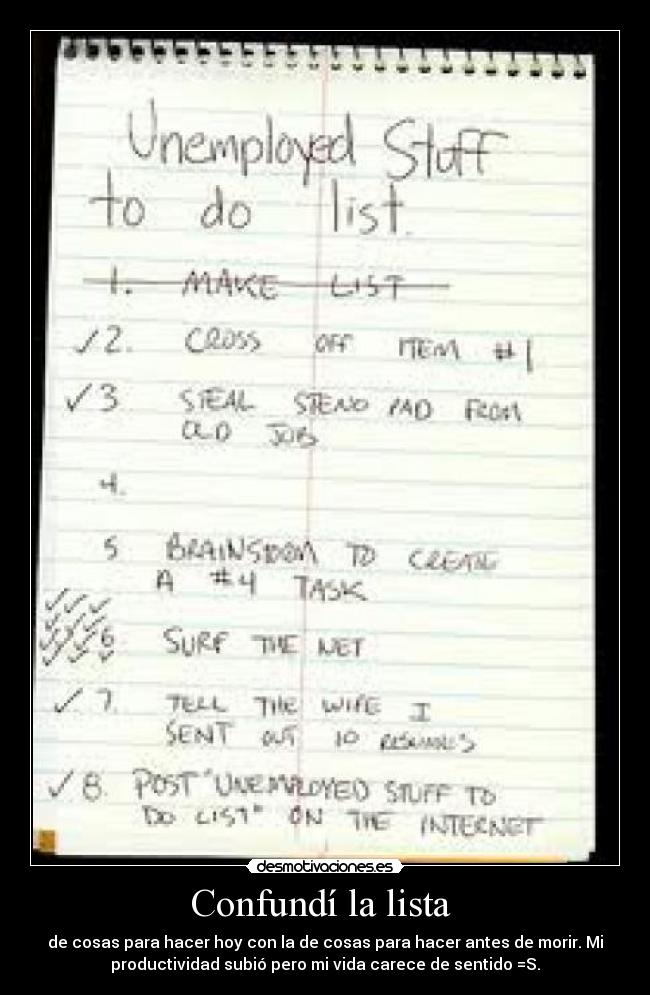 Unemployed Stuff
to do list.
1. MAKE LIST
✓2. CROSS OFF ITEM #1
✓3 STEAL STENO PAD FROM
OLD JOB
4.
5 BRAINSTORM TO CREATE
A #4 TASK
6 SURF THE NET
✓7. TELL THE WIFE I
SENT OUT 10 RESUMES
✓8. POST "UNEMPLOYED STUFF TO
DO LIST" ON THE INTERNET
desmotivaciones.es
Confundí la lista
de cosas para hacer hoy con la de cosas para hacer antes de morir. Mi
productividad subió pero mi vida carece de sentido =S.